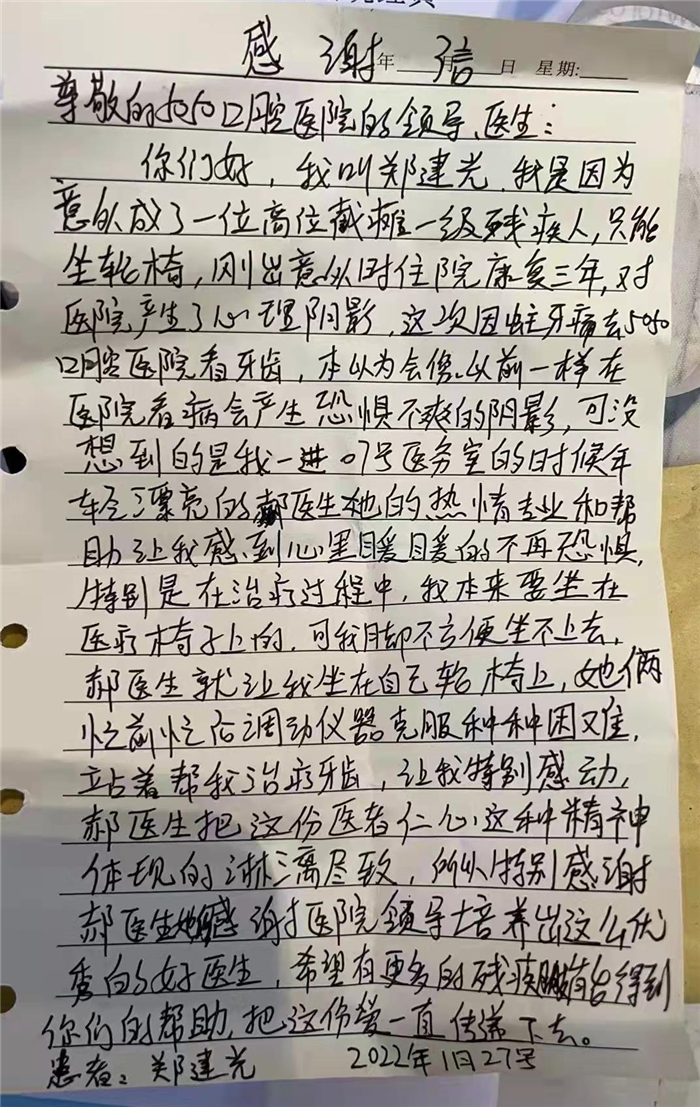 感谢信
年 月 日 星期:
尊敬的5050口腔医院的领导、医生:
你们好,我叫郑建光,我是因为
意外成了一位高位截瘫一级残疾人,只能
坐轮椅,刚出意外时住院康复三年,对
医院产生了心理阴影,这次因蛀牙痛去5050
口腔医院看牙齿,本以为会像以前一样在
医院看病会产生恐惧不爽的阴影,可没
想到的是我一进07号医务室的时候年
轻漂亮的郝医生她的热情专业和帮
助让我感到心里暖暖的不再恐惧,
特别是在治疗过程中,我本来要坐在
医疗椅子上的,可我脚不方便坐不上去,
郝医生就让我坐在自己轮椅上,她俩
忙前忙后调动仪器克服种种困难,
站着帮我治疗牙齿,让我特别感动,
郝医生把这份医者仁心这种精神
体现的淋漓尽致,所以特别感谢
郝医生感谢医院领导培养出这么优
秀的好医生,希望有更多的残疾朋友能得到
你们的帮助,把这份爱一直传递下去。
患者:郑建光 2022年1月27号